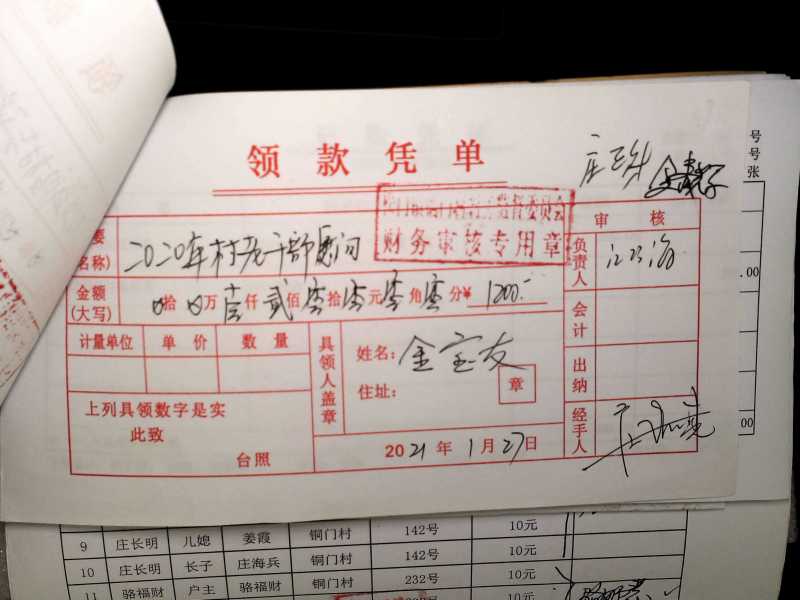 领款凭单
财务审核专用章
要
名称)
2020年村老干部慰问
审核
负责人
金额
(大写)
拾 万壹仟贰佰零拾零元零角零分¥ 1200.-
会计
计量单位 单价 数量
具领人盖章
姓名: 金宝友
住址:
章
出纳
上列具领数字是实
此致
台照
2021年1月27日
经手人
号
号
张
.00
00
9 庄长明 儿媳 姜霞 铜门村 142号 10元
10 庄长明 长子 庄海兵 铜门村 142号 10元
11 骆福财 户主 骆福财 铜门村 232号 10元